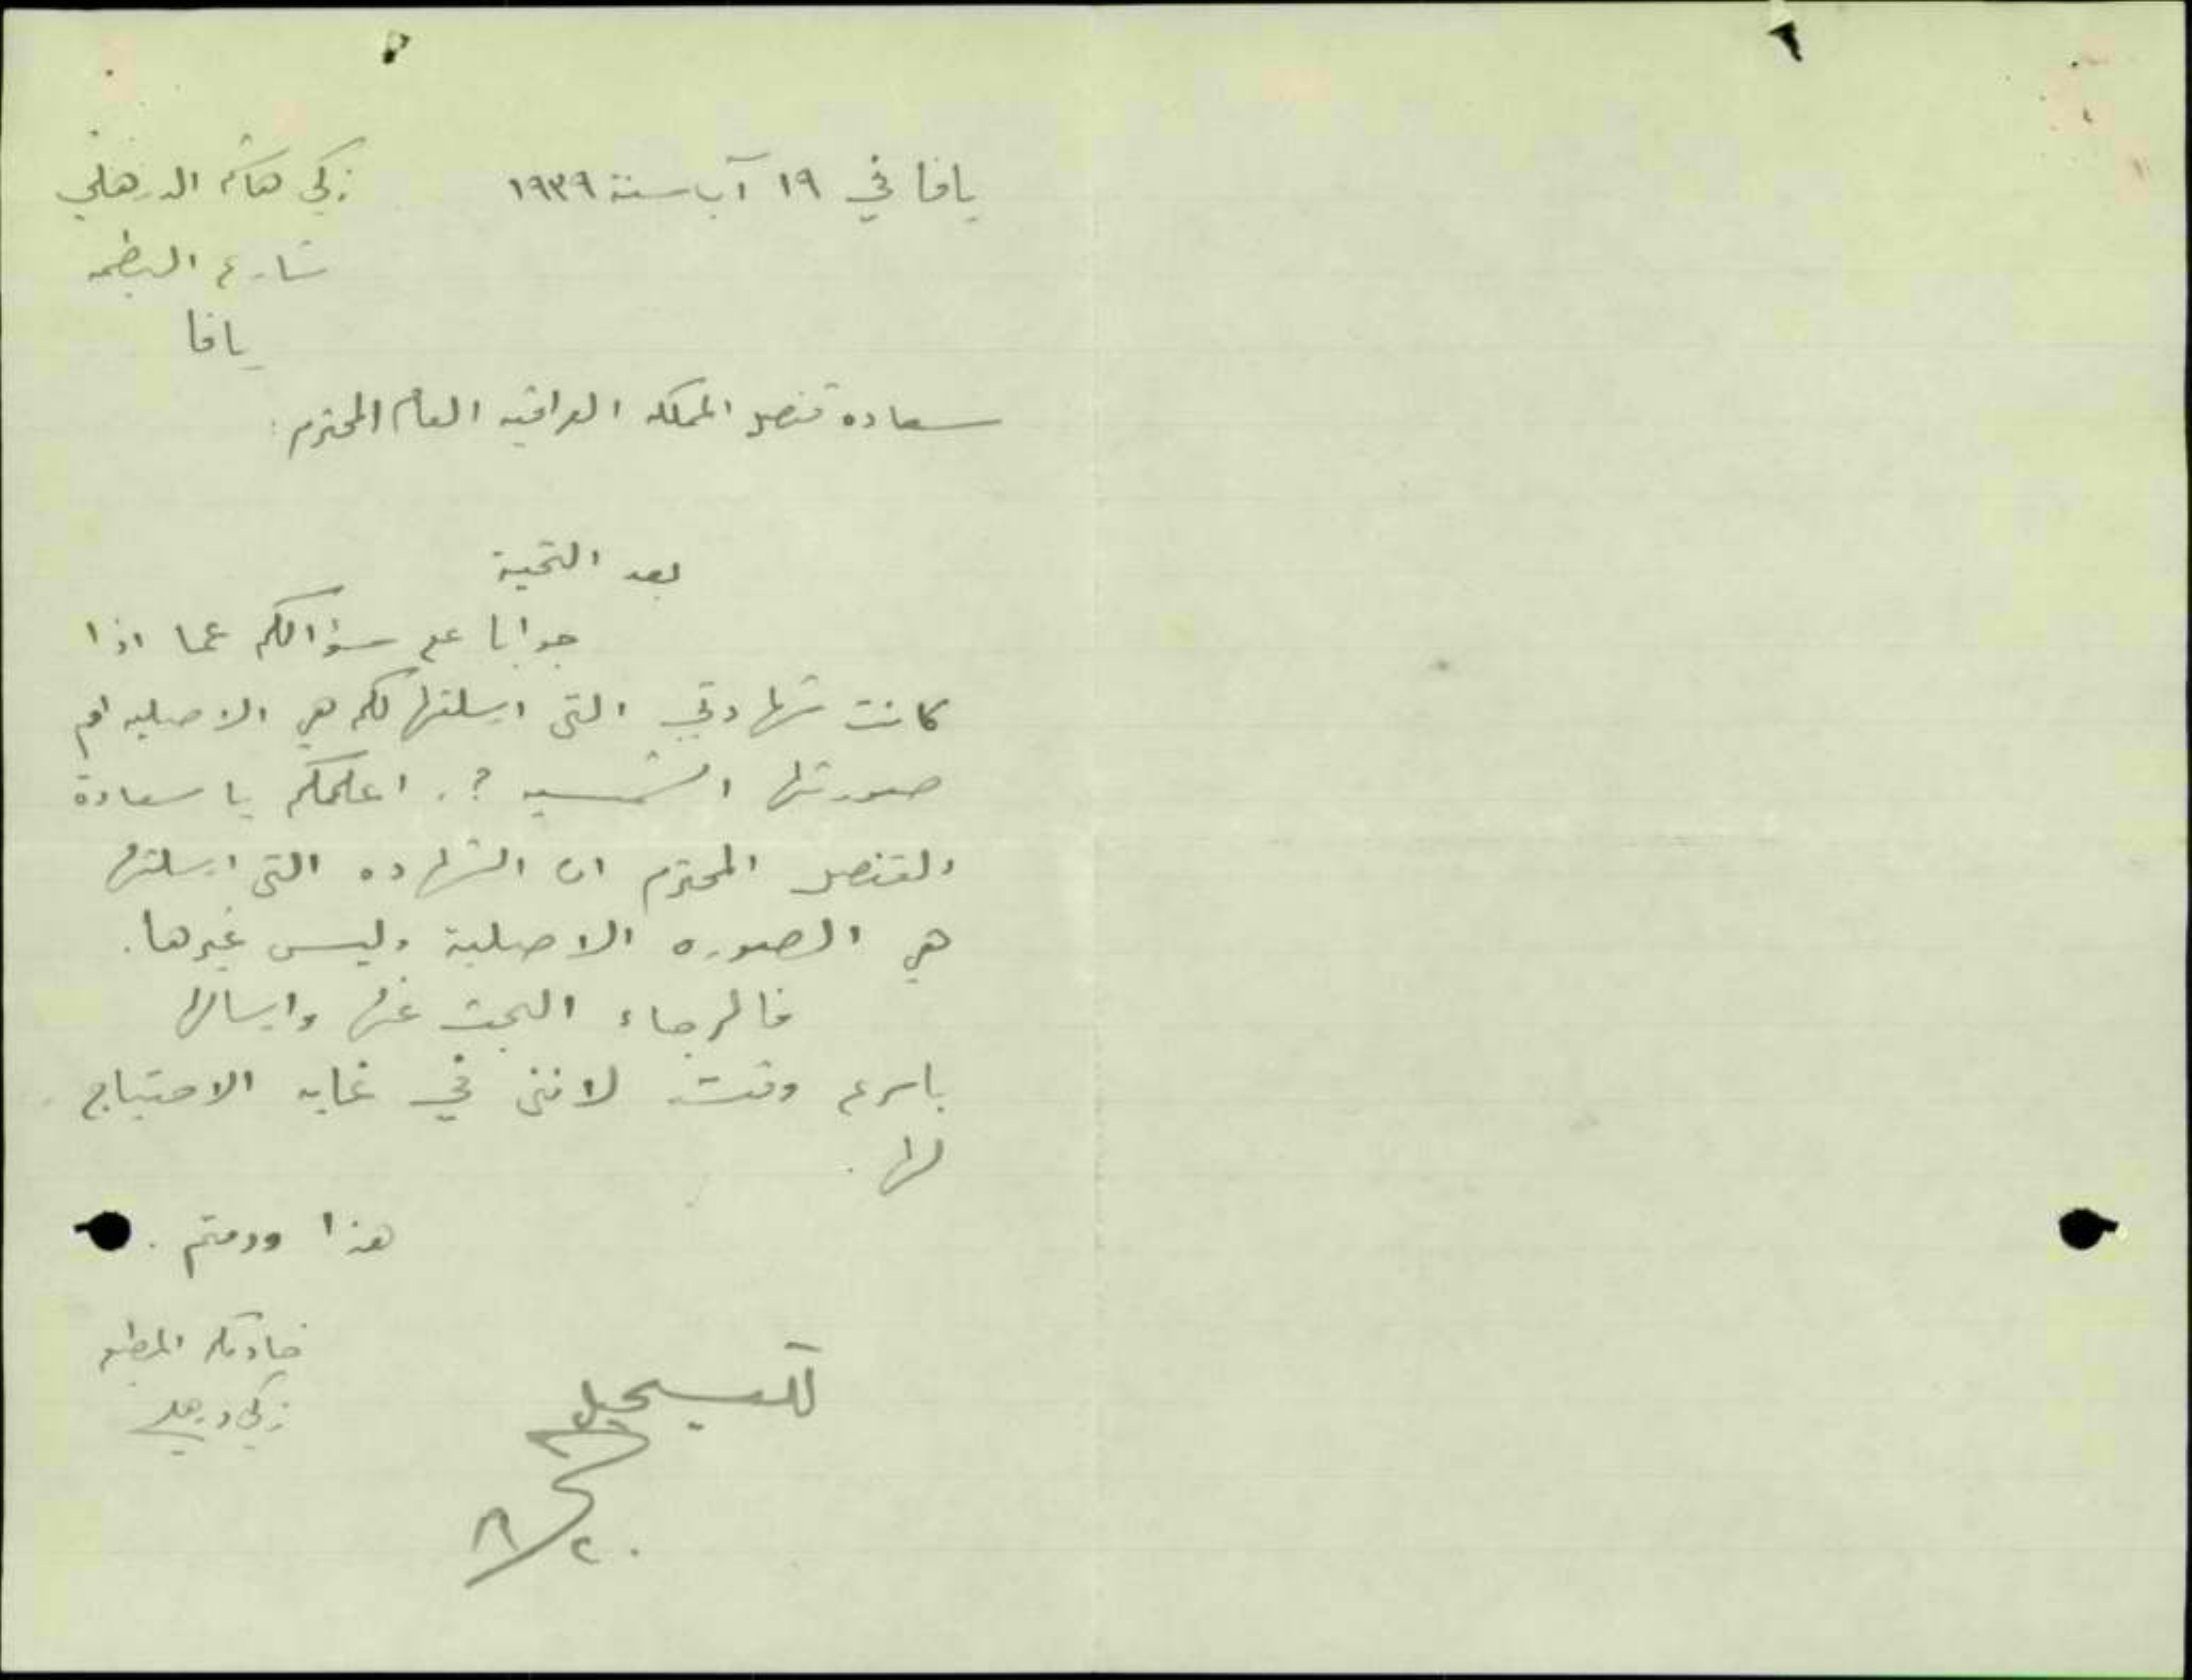 يافا في ١٩ آب سنة ١٩٣٩
زكي هاشم الدرهلي
شارع البطمه
يافا
سعاده قنصل المملكه العراقيه العام المحترم:
بعد التحية
جوابا على سؤالكم عما اذا
كانت شهادتي التي ارسلتها لكم هي الاصليه ام
صورتها الشمسيه ?. اعلمكم يا سعادة
القنصل المحترم ان الشهاده التي ارسلتها
هي الصوره الاصلية وليس غيرها.
فالرجاء البحث عنها وارسالها
باسرع وقت لانني في غايه الاحتياج
لها.
هذا ودمتم.
خادمكم المطيع
زكي درهلي
للتسجيل
٢٠/٨